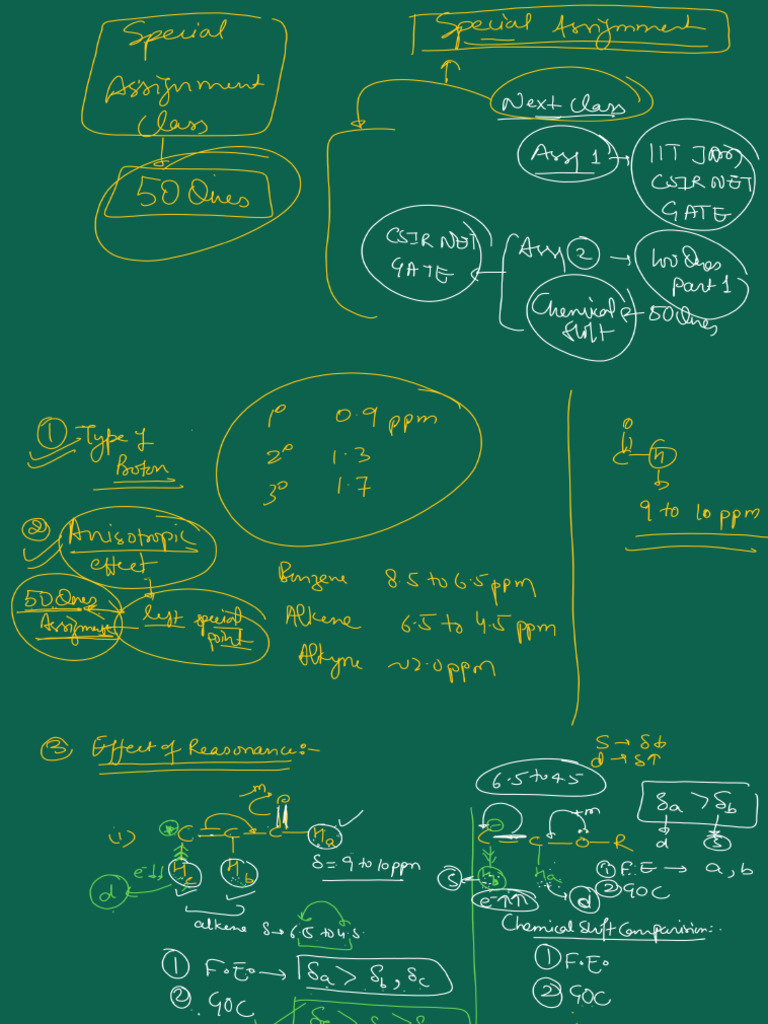 Special
Assignment
Class
50 Ques
Special Assignment
Next Class
Assg 1 → IIT JAM
CSIR NET
GATE
CSIR NET
GATE
Assg 2 → 100 Ques
Part 1
Chemical
Shift
50 Ques
① Type of
Proton
1° 0.9 ppm
2° 1.3
3° 1.7
O
C – H
9 to 10 ppm
② Anisotropic
effect
50 Ques
Assignment
left special
point
Benzene 8.5 to 6.5 ppm
Alkene 6.5 to 4.5 ppm
Alkyne ~2.0 ppm
③ Effect of Reasonance:-
(i) C = C – C – Ha
O
-m
Hc Hb
δ = 9 to 10 ppm
e-↓↓
d
alkene δ → 6.5 to 4.5
① F.E. → δa > δb, δc
② GOC
S → δ↓
d → δ↑
6.5 to 4.5
δa > δb
d S
C = C – O – R
+m
Hb Ha
S d
e-↑↑
① F.E → a, b
② GOC
Chemical Shift Comparision:-
① F.E.
② GOC